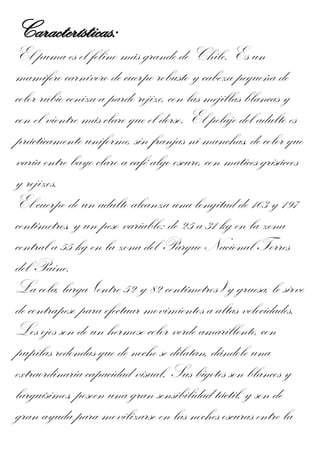 Características:
El puma es el felino más grande de Chile. Es un
mamífero carnívoro de cuerpo robusto y cabeza pequeña de
color rubio ceniza a pardo rojizo, con las mejillas blancas y
con el vientre más claro que el dorso. El pelaje del adulto es
prácticamente uniforme, sin franjas ni manchas, de color que
varía entre bayo claro a café algo oscuro, con matices grisáceos
y rojizos.
El cuerpo de un adulto alcanza una longitud de 103 y 197
centímetros, y un peso variable: de 25 a 31 kg en la zona
central a 55 kg en la zona del Parque Nacional Torres
del Paine.
La cola, larga (entre 52 y 82 centímetros) y gruesa, le sirve
de contrapeso para efectuar movimientos a altas velocidades.
Los ojos son de un hermoso color verde amarillento, con
pupilas redondas que de noche se dilatan, dándole una
extraordinaria capacidad visual. Sus bigotes son blancos y
larguísimos, poseen una gran sensibilidad táctil, y son de
gran ayuda para movilizarse en las noches oscuras entre la